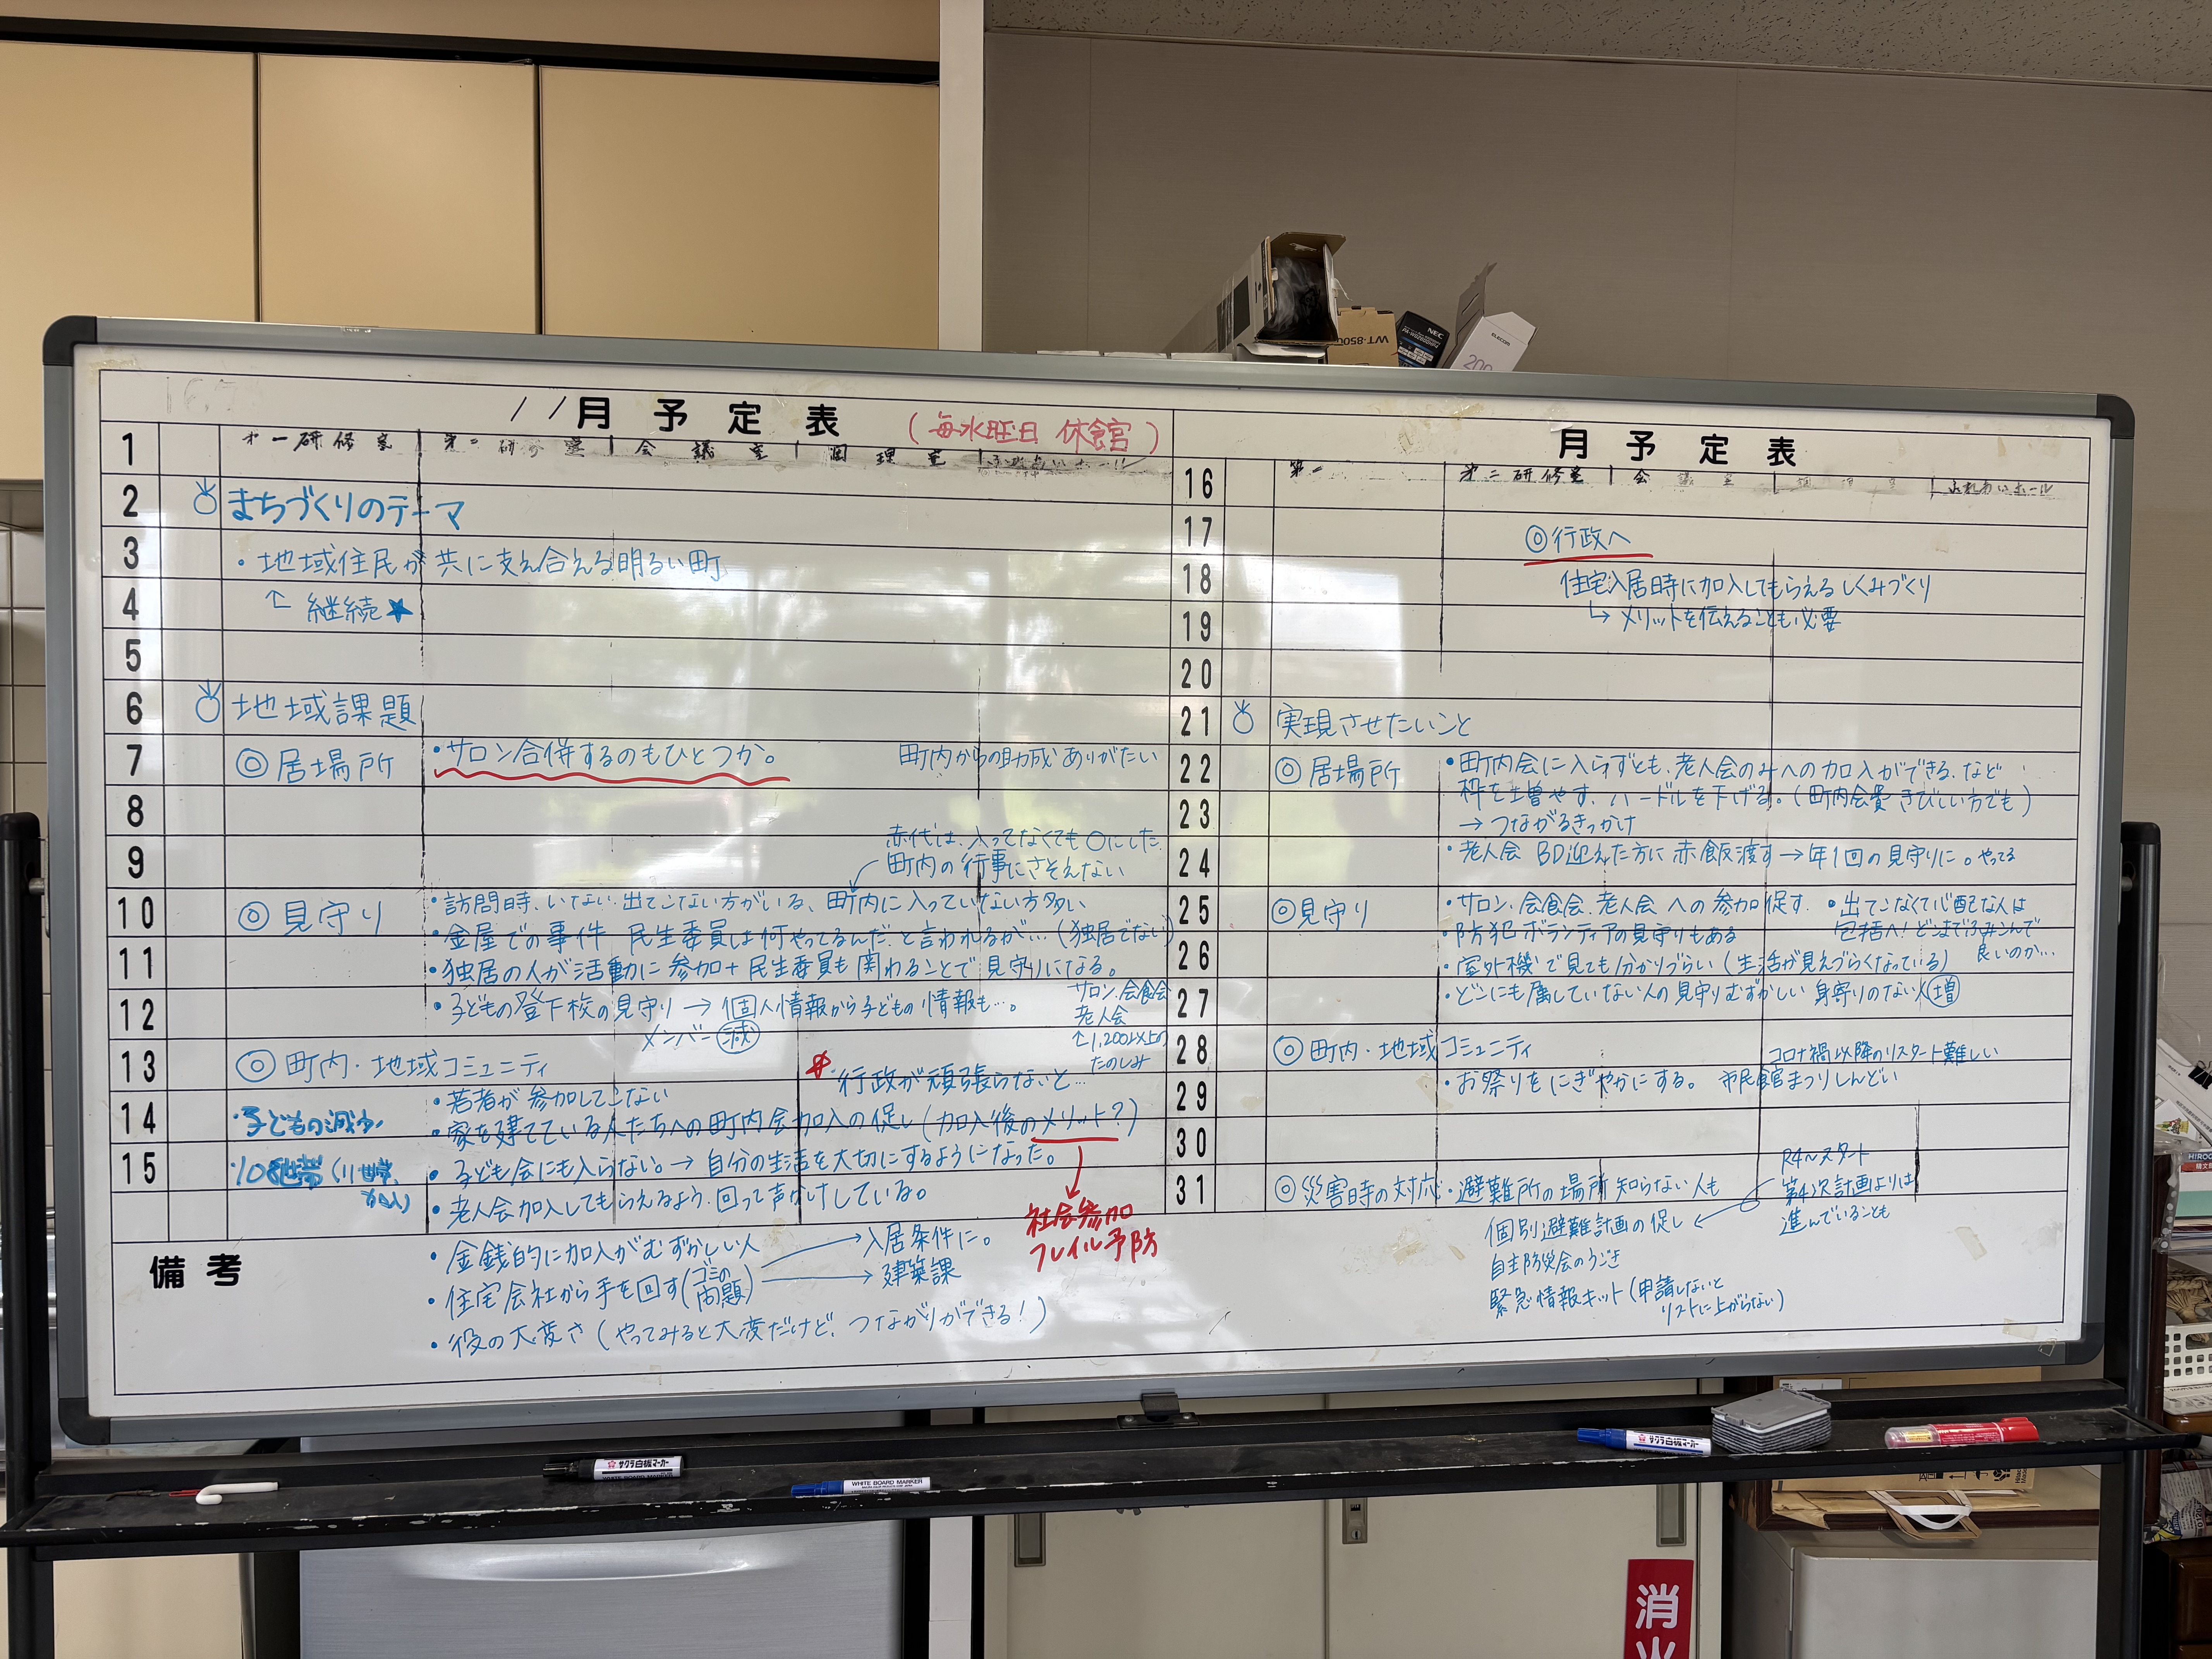 月予定表
(毎水曜日 休館)
1
第一研修室 第二研修室 会議室 調理室 ふれあいホール
2 まちづくりのテーマ
3 ・地域住民が共に支え合える明るい町
4 ↑ 継続★
5
6 地域課題
7 ◎居場所 ・サロン合併するのもひとつか。 町内からの助成ありがたい
8
赤代は、入ってなくても〇にした
9 町内の行事にさそえない
10 ◎見守り ・訪問時、いない、出てこない方がいる、町内に入っていない方多い
・金屋での事件 民生委員は何やってるんだ、と言われるが…(独居でない)
11 ・独居の人が活動に参加+民生委員も関わることで見守りになる。
12 ・子どもの登下校の見守り → 個人情報から子どもの情報も…。
メンバー減
サロン、会食会
老人会
↑1,200以上の
たのしみ
13 ◎町内・地域コミュニティ
・行政が頑張らないと…
・若者が参加してこない
14 ・子どもの減少
・家を建てている人たちへの町内会加入の促し(加入後のメリット?)
15 ・108世帯(11世帯
・子ども会にも入らない。→ 自分の生活を大切にするようになった。
・老人会加入してもらえるよう、回って声かけしている。
社会参加
フレイル予防
備考
・金銭的に加入がむずかしい人
・住宅会社から手を回す(ゴミの問題)
→ 入居条件に。
→ 建築課
・役の大変さ(やってみると大変だけど、つながりができる!)
月予定表
16 第一 第二研修室 会議室 調理室 ふれあいホール
17 ◎行政へ
18 住宅入居時に加入してもらえるしくみづくり
19 ↳ メリットを伝えることも必要
20
21 実現させたいこと
22 ◎居場所 ・町内会に入らずとも、老人会のみへの加入ができる、など
枠を増やす、ハードルを下げる。(町内会費きびしい方でも)
23 → つながるきっかけ
24 ・老人会 BD迎えた方に赤飯渡す→年1回の見守りに。やってる
25 ◎見守り ・サロン、会食会、老人会への参加促す。
・出てこなくて心配な人は
包括へ!どこまでふみこんで
良いのか…
・防犯ボランティアの見守りもある
26 ・室外機で見ても分かりづらい(生活が見えづらくなっている)
27 ・どこにも属していない人の見守りむずかしい 身寄りのない人増
28 ◎町内・地域コミュニティ
コロナ禍以降のリスタート難しい
29 ・お祭りをにぎやかにする。 市民館まつりしんどい
30
31 ◎災害時の対応 ・避難所の場所知らない人も
R4〜スタート
第4次計画よりは
進んでいることも
個別避難計画の促し
自主防災会のうごき
緊急情報キット(申請しないと
リストに上がらない)
WT-850
NEC
ELECOM
200
サクラ白板マーカー
WHITE BOARD MARKER
サクラ白板マーカー
消火